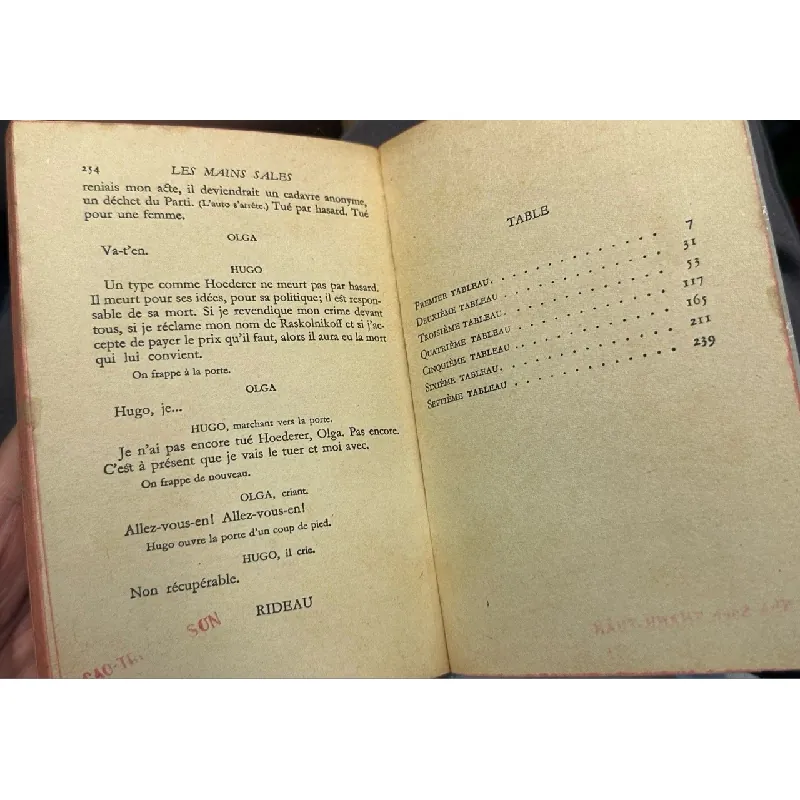 254
LES MAINS SALES
reniais mon acte, il deviendrait un cadavre anonyme,
un déchet du Parti. (L'auto s'arrête.) Tué par hasard. Tué
pour une femme.
OLGA
Va-t'en.
HUGO
Un type comme Hoederer ne meurt pas par hasard.
Il meurt pour ses idées, pour sa politique; il est respon-
sable de sa mort. Si je revendique mon crime devant
tous, si je réclame mon nom de Raskolnikoff et si j'ac-
cepte de payer le prix qu'il faut, alors il aura eu la mort
qui lui convient.
On frappe à la porte.
OLGA
Hugo, je...
HUGO, marchant vers la porte.
Je n'ai pas encore tué Hoederer, Olga. Pas encore.
C'est à présent que je vais le tuer et moi avec.
On frappe de nouveau.
OLGA, criant.
Allez-vous-en! Allez-vous-en!
Hugo ouvre la porte d'un coup de pied.
HUGO, il crie.
Non récupérable.
RIDEAU
SƠN
TABLE
PREMIER TABLEAU. 7
DEUXIÈME TABLEAU 31
TROISIÈME TABLEAU. 53
QUATRIÈME TABLEAU 117
CINQUIÈME TABLEAU 165
SIXIÈME TABLEAU. 211
SEPTIÈME TABLEAU 239